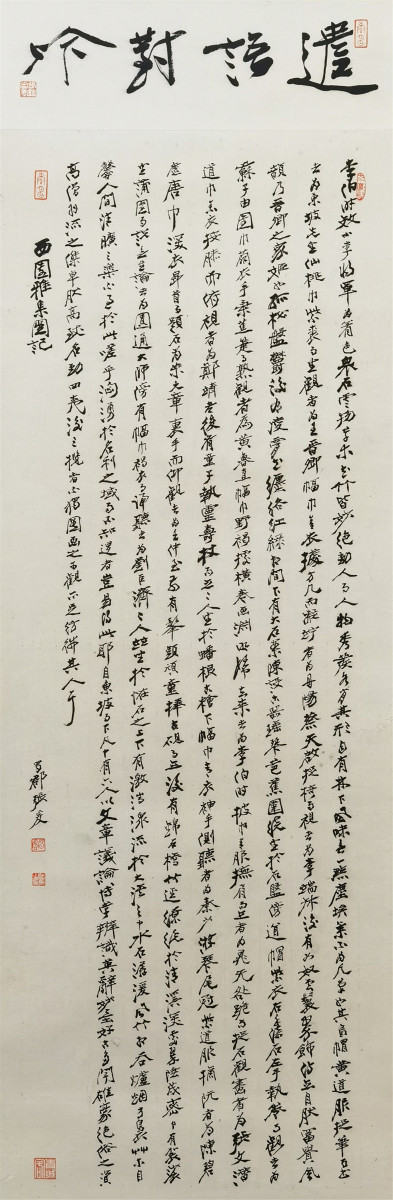 遣語對吟
李伯時效小李將軍為着色泉石雲物草木花竹皆妙絕動人而人物秀發各肖其形自有林下風味無一點塵埃氣不為凡筆也其烏帽黃道服捉筆而書
者為東坡先生仙桃巾紫裘而坐觀者為王晉卿幅巾青衣據方几而凝竚者為丹陽蔡天啟捉椅而視者為李端叔後有女奴雲鬟翠飾侍立自然富貴風
韻乃晉卿之家姬也孤松盤鬱後有凌霄纏絡紅綠相間下有大石案陳設古器瑤琴芭蕉圍繞坐於石盤傍道帽紫衣右手倚石左手執卷而觀書者為
蘇子由團巾繭衣手秉蕉箑而熟觀者為黃魯直幅巾野褐據橫卷畫淵明歸去來者為李伯時披巾青服撫肩而立者為晁无咎跪而捉石觀畫者為張文潛
道巾素衣按膝而俯視者為鄭靖老後有童子執靈壽杖而立二人坐於蟠根古檜下幅巾青衣袖手側聽者為秦少游琴尾冠紫道服摘阮者為陳碧
虛唐巾深衣昂首而題石者為米元章裹手而仰觀者為王仲至前有髼頭頑童捧古硯而立後有錦石橋竹逕繚繞於清溪深處翠陰茂密中有袈裟
坐蒲團而說無生論者為圓通大師傍有幅巾褐衣而諦聽者為劉巨濟二人並坐於怪石之上下有激湍潨流於大溪之中水石潺湲風竹相吞爐烟方裊草木自
馨人間清曠之樂不過於此嗟乎洶湧於名利之域而不知退者豈易得此耶自東坡而下凡十有六人以文章議論博學辨識英辭妙墨好古多聞雄豪絕俗之資
高僧羽流之傑卓然高致名動四夷後之攬者不獨圖畫之可觀亦足彷彿其人耳
西園雅集圖記
張友